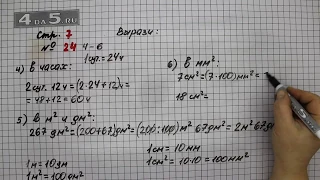 4DA5.RU
Стр. 7
№ 24 4-6
Вырази:
4) в часах:
1сут. = 24ч
2сут. 12ч = (2·24+12)ч =
= 48+12 = 60ч
5) в м² и дм²:
267 дм² = (200+67)дм² = (200:100)м² 67дм² = 2м² 67д
1м = 10дм
1м² = 100дм²
6) в мм²:
7см² = (7·100)мм² =
18см² =
1см = 10мм
1см² = 10·10 = 100мм²